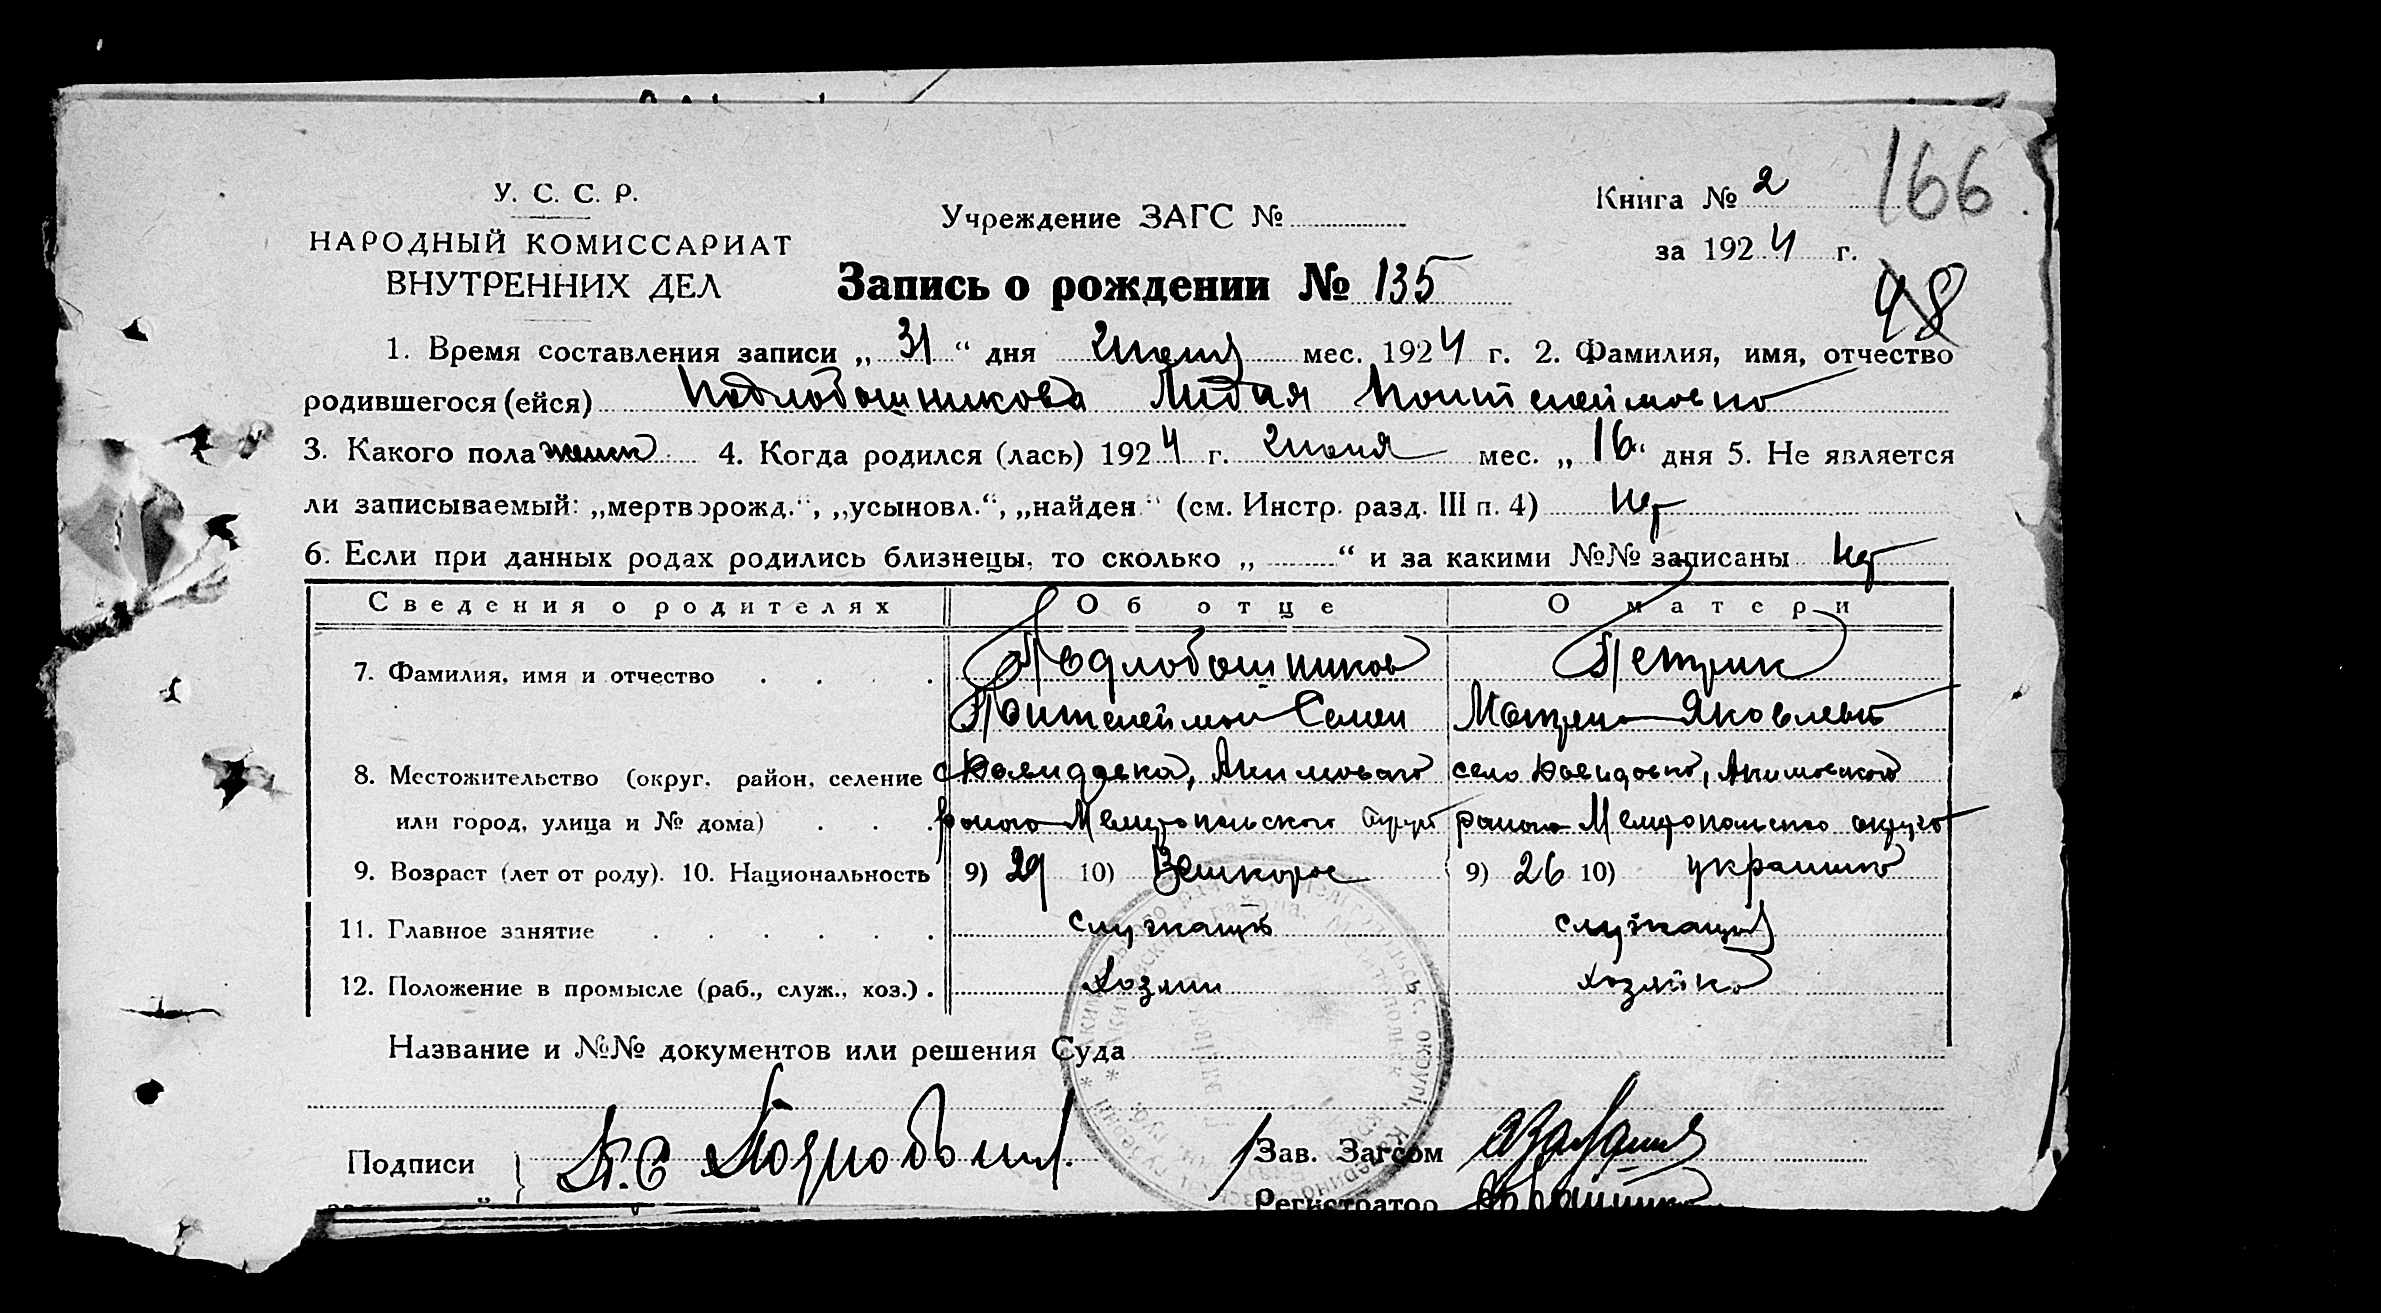 166
У. С. С. Р.
НАРОДНЫЙ КОМИССАРИАТ
ВНУТРЕННИХ ДЕЛ
Учреждение ЗАГС №
Книга № 2
за 1924 г.
48
Запись о рождении № 135
1. Время составления записи „ 31 “ дня июля мес. 1924 г. 2. Фамилия, имя, отчество
родившегося (ейся) Подлобошникова Лидия Пантелеймовно
3. Какого пола женск 4. Когда родился (лась) 1924 г. Июня мес. „ 16 “ дня 5. Не является
ли записываемый: „мертворожд.“, „усыновл.“, „найден“ (см. Инстр. разд. III п. 4) нет
6. Если при данных родах родились близнецы, то сколько „ “ и за какими №№ записаны нет
Сведения о родителях Об отце О матери
7. Фамилия, имя и отчество . . . Подлобошников Петрик
Пантелеймон Семен Матрена Яковлевн
8. Местожительство (округ, район, селение с Давиддвка, Акимовского село Давидовко, Акимовского
или город, улица и № дома) . . . района Мелитопольского округа района Мелитопольского округа
9. Возраст (лет от роду). 10. Национальность 9) 29 10) Великорос 9) 26 10) украинка
11. Главное занятие . . . . . . служащий служащий
12. Положение в промысле (раб., служ., хоз.) . Хозяин хозяйка
Название и №№ документов или решения Суда
Подписи П. С Подлобошн. Зав. Загсом
Регистратор